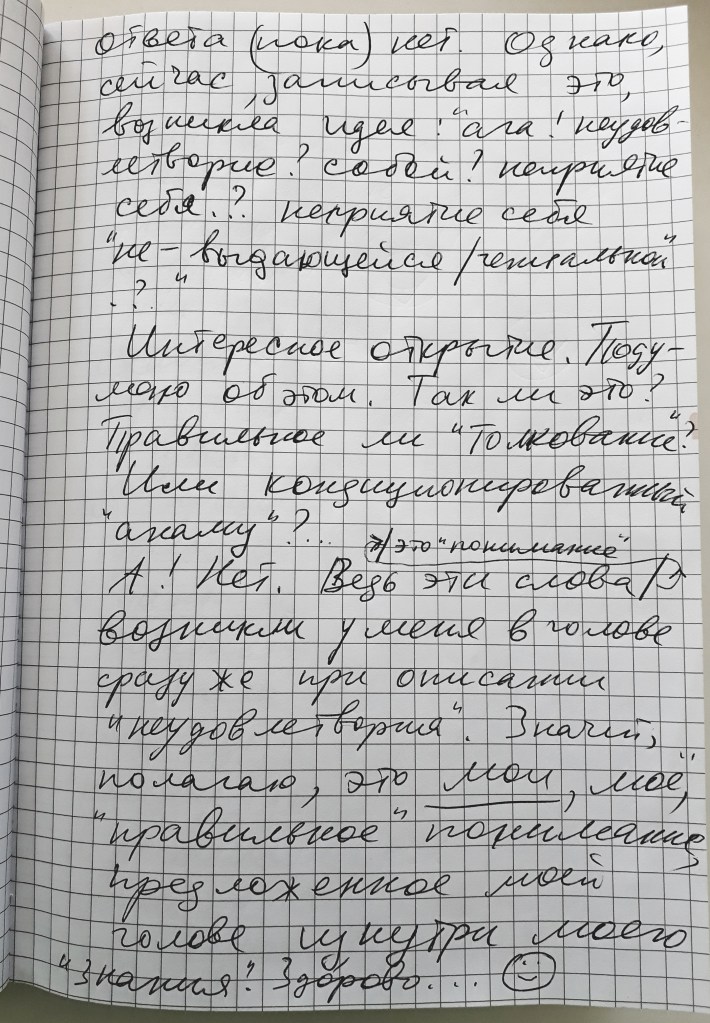 ответа (пока) нет. Однако,
сейчас, записывая это,
возникла идея: "ага! неудов-
летворие? собой? неприятие
себя.? неприятие себя
"не-выдающейся/гениальной"
.?"
Интересное открытие. Поду-
маю об этом. Так ли это?
Правильное ли "Толкование"?
Или кондиционированный
"анализ"?...
/это "понимание"
А! Нет. Ведь эти слова/
возникли у меня в голове
сразу же при описании
"неудовлетвория". Значит,
полагаю, это мои, моё,
"правильное" понимание,
предложенное моей
голове изнутри моего
"Знания". Здорово....